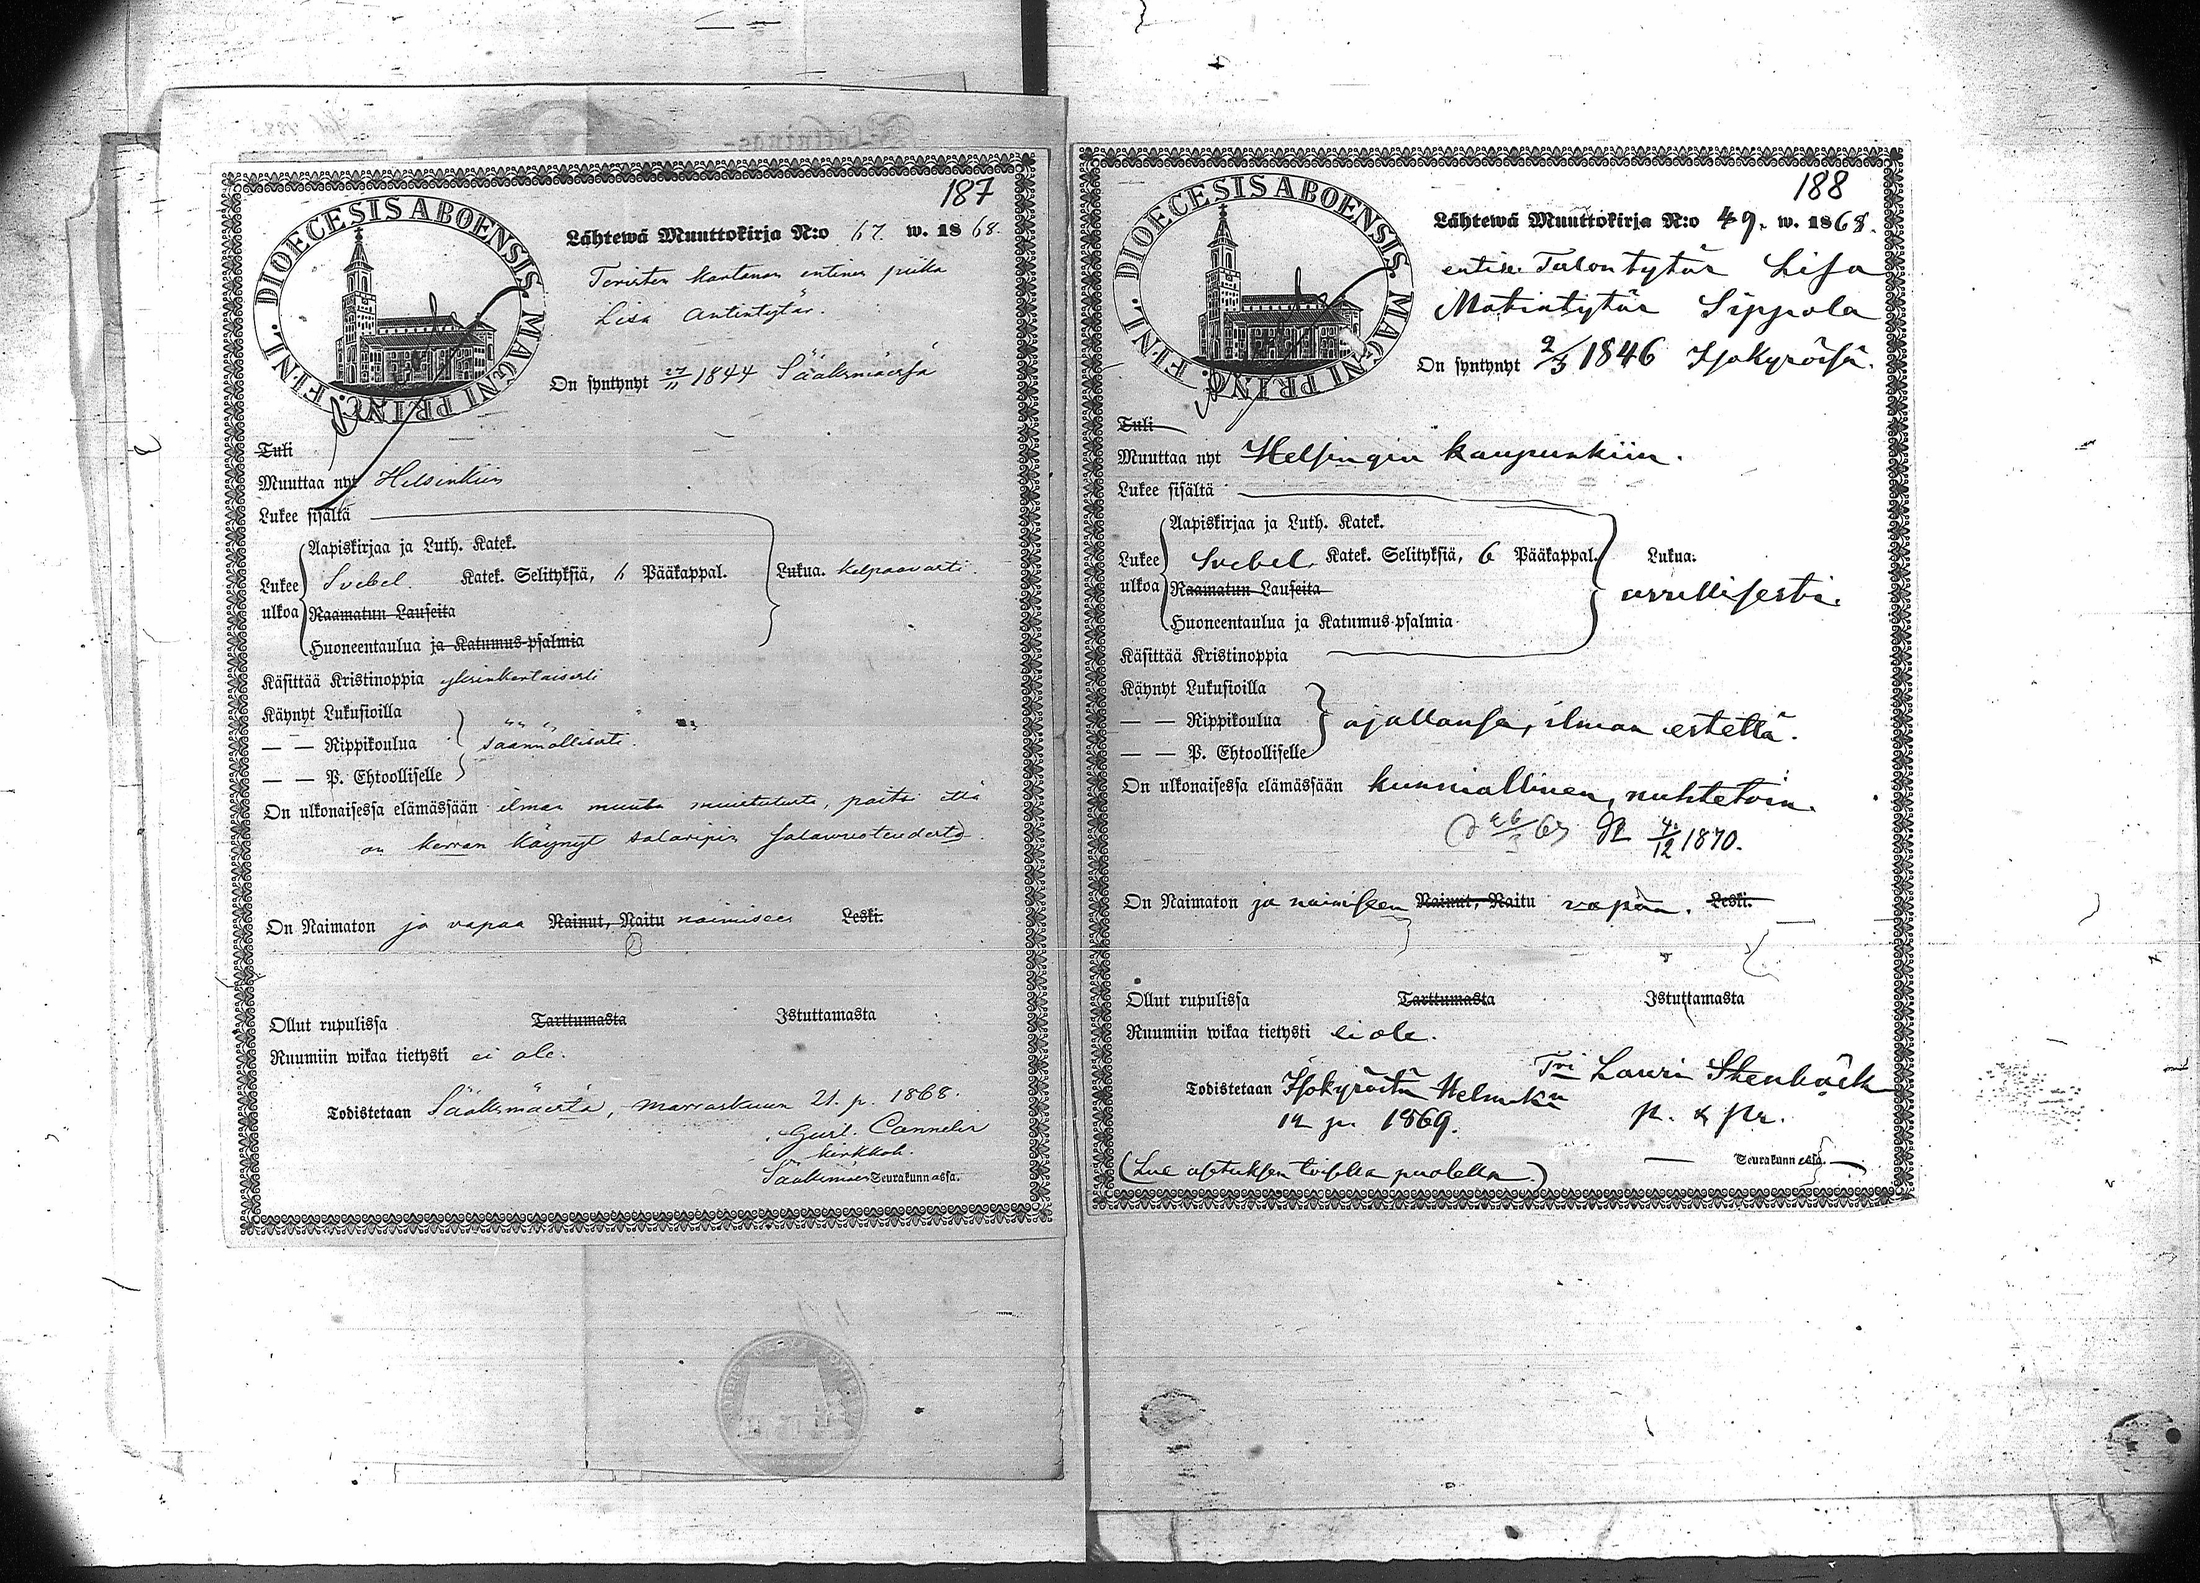 187
DIOECESIS ABOENSIS MAGNI PRINC. FINL.
Lähtewä Muuttokirja N:o 67. w. 1868.
kartanon entinen piika
Lisa Antintytär.
On syntynyt 27/11 1844 Sääksmäessä
Tuli
Muuttaa nyt Helsinkiin
Lukee sisältä
Aapiskirjaa ja Luth. Katek.
Lukee ulkoa Svebel. Katek. Selityksiä, 6 Pääkappal. Lukua. kelpaavasti
Raamatun Lauseita
Huoneentaulua ja Katumus-psalmia
Käsittää Kristinoppia yksinkertaisesti
Käynyt Lukusioilla
— — Rippikoulua säännöllisesti.
— — P. Ehtoolliselle
On ulkonaisessa elämässään ilman muuta muistutusta, paitsi että
on kerran käynyt salaripin salavuoteudesta.
On Naimaton ja vapaa Nainut, Naitu naimiseen Leski.
Ollut rupulissa Tarttumasta Istuttamasta
Ruumiin wikaa tietysti ei ole.
Todistetaan Sääksmäestä, marraskuun 21. p. 1868.
Gust. Cannelin
kirkkoh.
Sääksmäen Seurakunnassa.
188
DIOECESIS ABOENSIS MAGNI PRINC. FINL.
Lähtewä Muuttokirja N:o 49. w. 1868.
entise Talontytär Lisa
Matintytär Sippola
On syntynyt 2/3 1846 Isokyrössä.
Tuli
Muuttaa nyt Helsingin kaupunkiin.
Lukee sisältä
Aapiskirjaa ja Luth. Katek.
Lukee ulkoa Svebel. Katek. Selityksiä, 6 Pääkappal. Lukua.
Raamatun Lauseita avullisesti.
Huoneentaulua ja Katumus-psalmia
Käsittää Kristinoppia
Käynyt Lukusioilla
— — Rippikoulua ajallansa, ilman estettä.
— — P. Ehtoolliselle
On ulkonaisessa elämässään kunniallinen, nuhtetoin.
4/12 1870.
On Naimaton ja naimiseen Nainut, Naitu vapaa. Leski.
Ollut rupulissa Tarttumasta Istuttamasta
Ruumiin wikaa tietysti ei ole.
Todistetaan Isokyröstä Helmik:n Lauri Stenbäck
12 p. 1869. p. & pr.
Seurakunnassa.
(Lue oikaisun toisella puolella.)